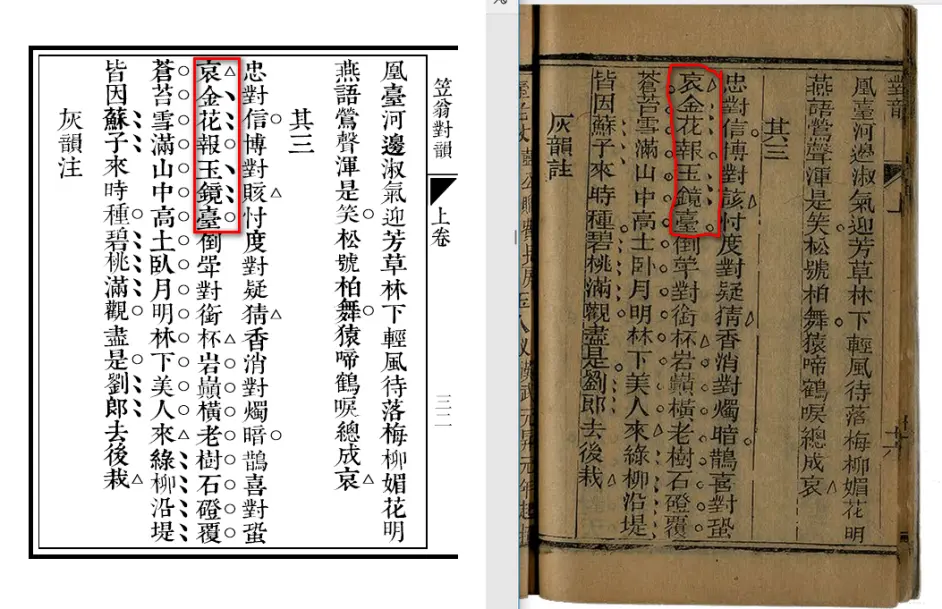 笠翁對韻
上卷
三二
凰臺河邊淑氣迎芳草林下輕風待落梅柳媚花明
燕語鶯聲渾是笑松號柏舞猿啼鶴唳總成哀
其三
忠對信博對賅忖度對疑猜香消對燭暗鵲喜對蛩
哀金花報玉鏡臺倒斝對銜杯岩巔橫老樹石磴覆
蒼苔雪滿山中高士臥月明林下美人來綠柳沿堤
皆因蘇子來時種碧桃滿觀盡是劉郎去後栽
灰韻注
對韻
凰臺河邊淑氣迎芳草林下輕風待落梅柳媚花明
燕語鶯聲渾是笑松號柏舞猿啼鶴唳總成哀
其三
忠對信博對該忖度對疑猜香消對燭暗鵲喜對蛩
哀金花報玉鏡臺倒斝對銜杯岩巔橫老樹石磴覆
蒼苔雪滿山中高士卧月明林下美人來綠柳沿堤
皆因蘇子來時種碧桃滿觀盡是劉郎去後栽
灰韻註